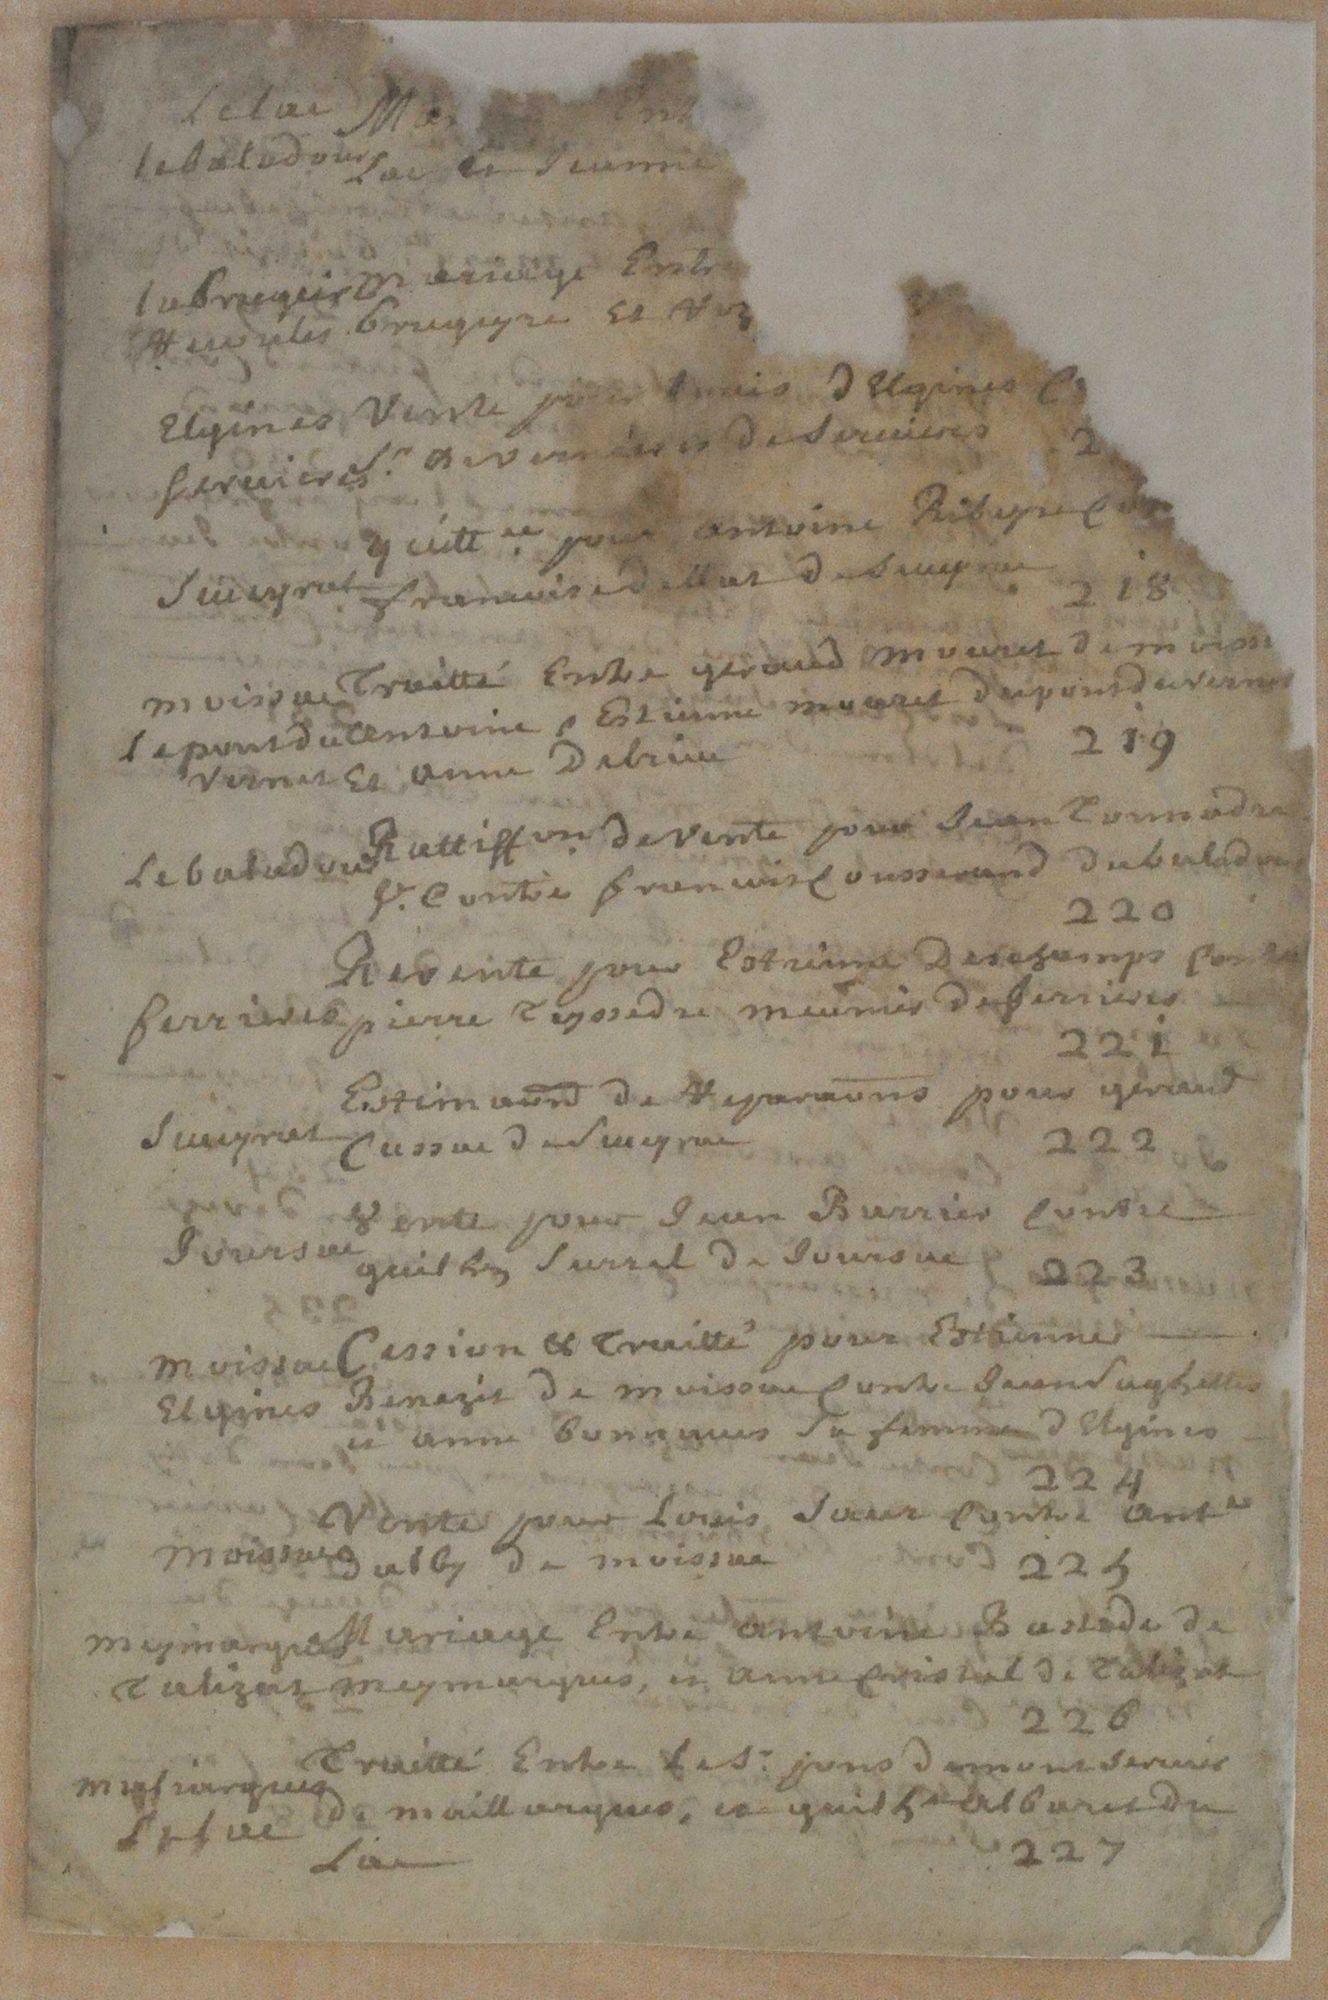 Lelac Ma Ent
lebaladour Lac et Jeanne
labrugeire Mariage Entr
Hercules brugeyre Et
Elgines Vente pour Louis d'Elgines C
servieres Sr de de Servieres 2
quittce pour antoine Ribeyre Con
Sueyrat francoise dellat de Sueyrac 218
moissac Traitté Entre geraud mouret de moiss
Lepontdu antoine, Estienne mouret dupontduvernet
vernet Et anne Debrieu 219
Lebaladour Rattiffon de vente pour Jean Tournadre
Contre francois Cousserand dubaladour
220
Revente pour Estienne Deschamps Contre
ferrieres pierre Teyssedre meunier de ferrieres
221
Estimaond de Reparaons pour geraud
Sueyrat Cussac de Sueyrac 222
Vente pour Jean Barrier Contre
Joursac Surrel de Joursac 223
moissac Cession & Traitté pour Estienne
Elgines Benezit de moissac Contre Jean Laghettes
et anne bonnaues Sa femme d'Elgines
224
Vente pour Louis Saur Contre antne
Moissac dalby de moissac 225
Meymargues Mariage Entre antoine Bastide de
Talizat meymargues, et anne Cristal de Talizat
226
Traitté Entre le Sr. pons demont Servier
maliargues de maillargues, et guilhe albaret du
Lelac Lac 227